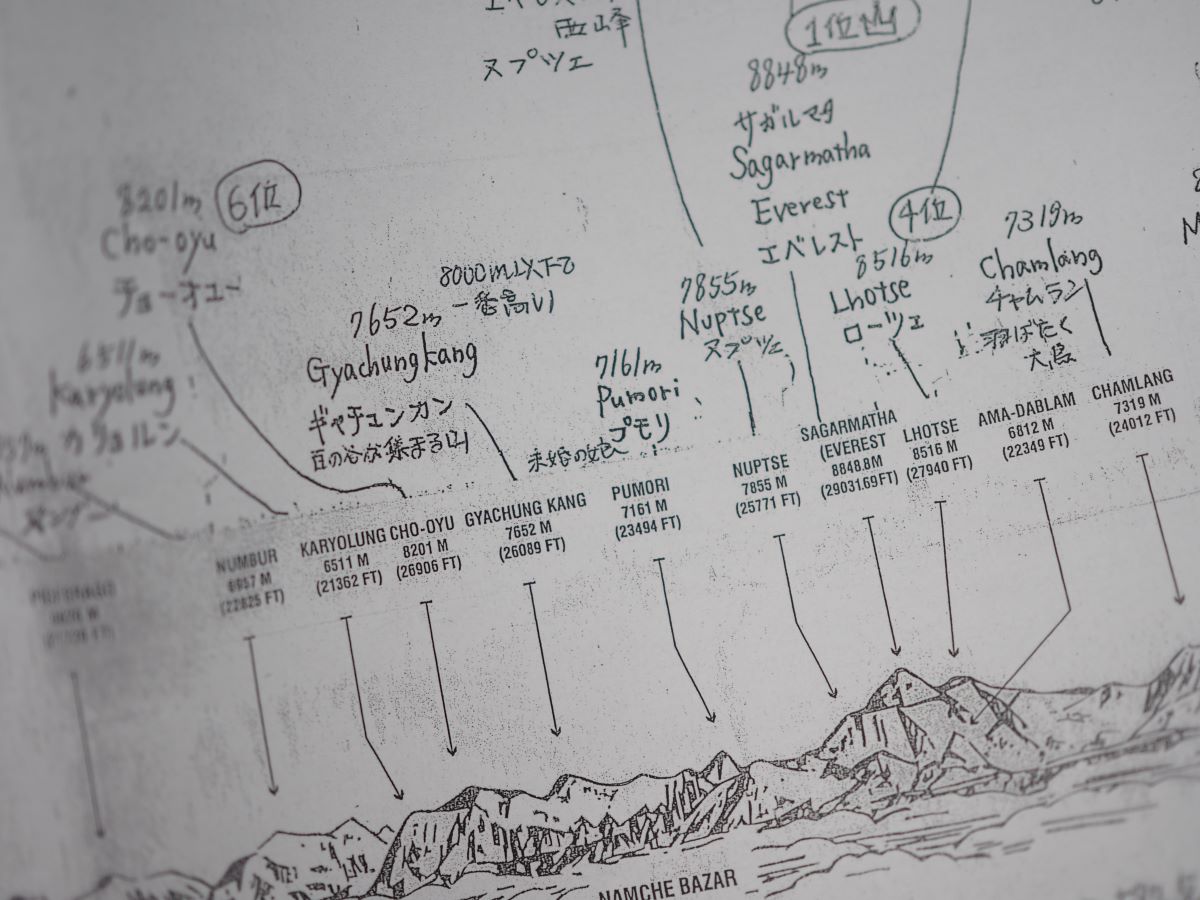 西峰
ヌプツェ
1位
8848m
サガルマタ
Sagarmatha
Everest
エベレスト
8201m
6位
Cho-oyu
チョーオユー
8000m以下で
一番高い
7652m
Gyachungkang
ギャチュンカン
百の谷が集まる山
6511m
Karyolung
カリョルン
7161m
Pumori
プモリ
未婚の娘
7855m
Nuptse
ヌプツェ
4位
8516m
Lhotse
ローツェ
7319m
Chamlang
チャムラン
羽ばたく
大鳥
NUMBUR
6957 M
(22825 FT)
KARYOLUNG
6511 M
(21362 FT)
CHO-OYU
8201 M
(26906 FT)
GYACHUNG KANG
7652 M
(26089 FT)
PUMORI
7161 M
(23494 FT)
NUPTSE
7855 M
(25771 FT)
SAGARMATHA
(EVEREST
8848.8M
(29031.69FT)
LHOTSE
8516 M
(27940 FT)
AMA-DABLAM
6812 M
(22349 FT)
CHAMLANG
7319 M
(24012 FT)
NAMCHE BAZAR